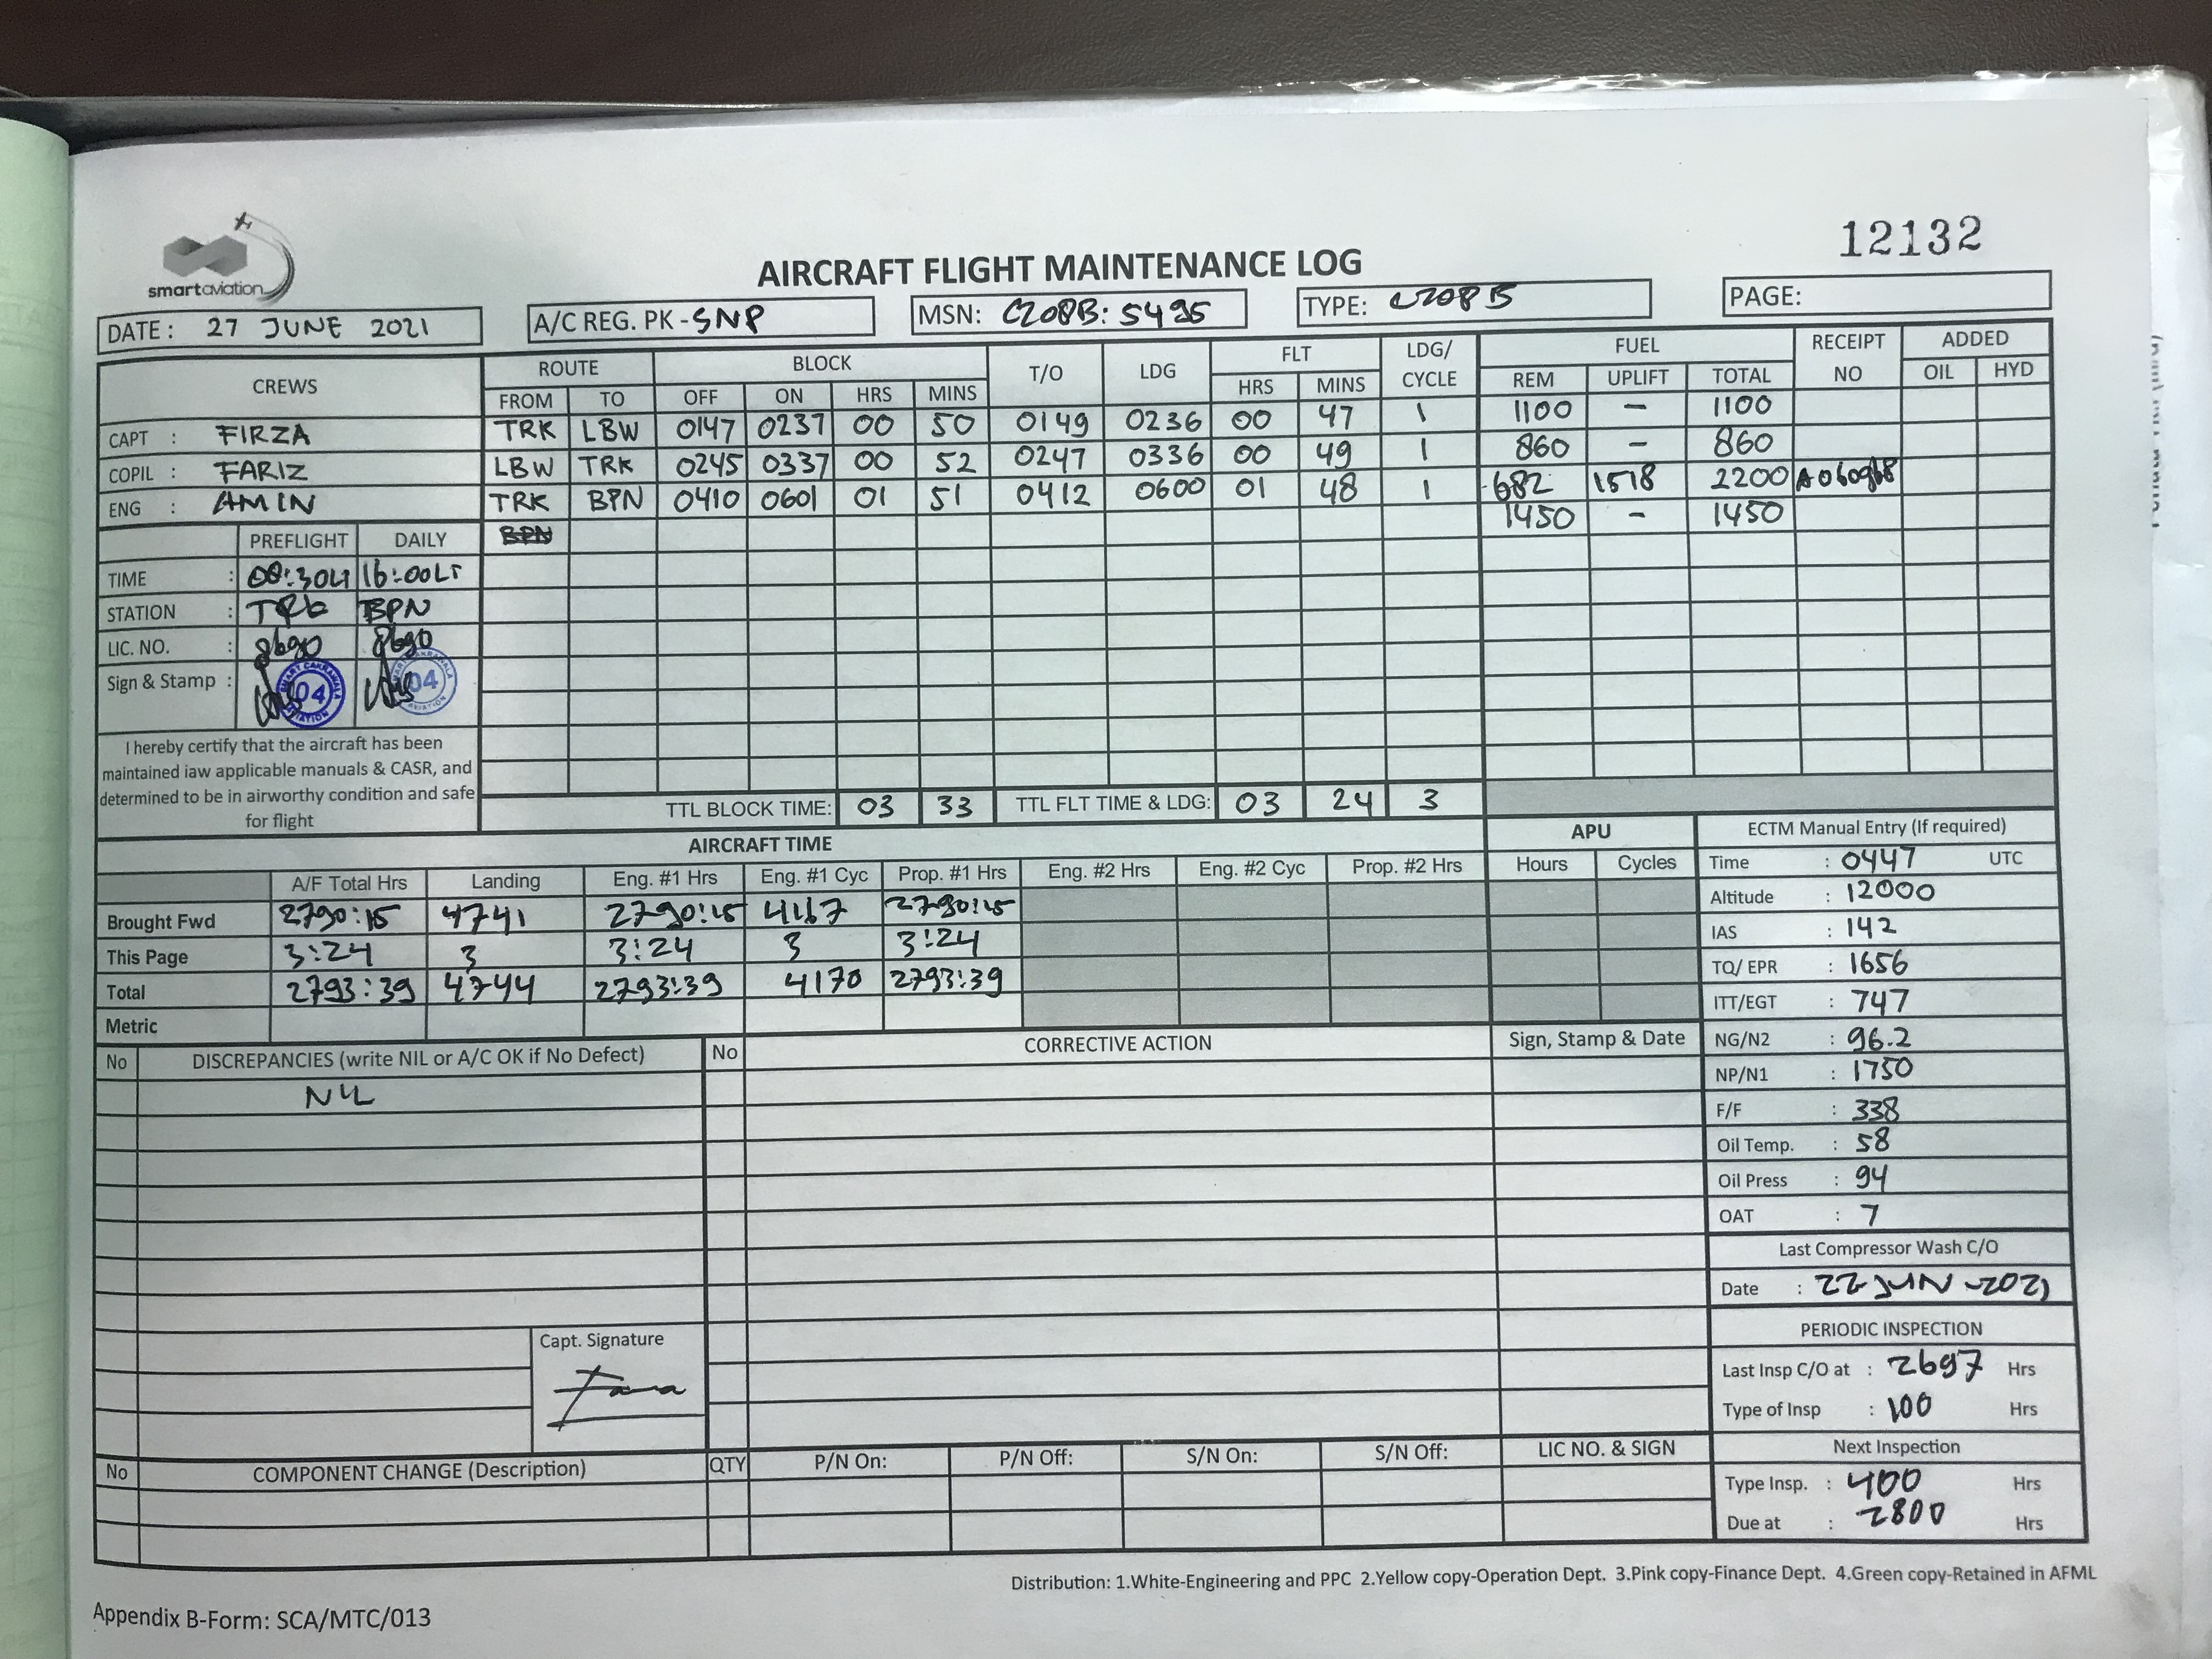 12132
smartaviation
AIRCRAFT FLIGHT MAINTENANCE LOG
DATE : 27 JUNE 2021 A/C REG. PK - SNP MSN: C208B: 5495 TYPE: C208B PAGE:
CREWS ROUTE BLOCK T/O LDG FLT LDG/ CYCLE FUEL RECEIPT NO ADDED
FROM TO OFF ON HRS MINS HRS MINS REM UPLIFT TOTAL OIL HYD
CAPT : FIRZA TRK LBW 0147 0237 00 50 0149 0236 00 47 1 1100 - 1100
COPIL : FARIZ LBW TRK 0245 0337 00 52 0247 0336 00 49 1 860 - 860
ENG : AMIN TRK BPN 0410 0601 01 51 0412 0600 01 48 1 682 1518 2200
BPN 1450 - 1450
PREFLIGHT DAILY
TIME : 08:30LT 16:00LT
STATION : TRK BPN
LIC. NO. : 8690 8690
Sign & Stamp :
SMART CAKRAWALA AVIATION 04
SMART CAKRAWALA AVIATION 04
I hereby certify that the aircraft has been
maintained iaw applicable manuals & CASR, and
determined to be in airworthy condition and safe
for flight
TTL BLOCK TIME: 03 33 TTL FLT TIME & LDG: 03 24 3
AIRCRAFT TIME APU
A/F Total Hrs Landing Eng. #1 Hrs Eng. #1 Cyc Prop. #1 Hrs Eng. #2 Hrs Eng. #2 Cyc Prop. #2 Hrs Hours Cycles
Brought Fwd 2790:15 4741 2790:15 4167 2790:15
This Page 3:24 3 3:24 3 3:24
Total 2793:39 4744 2793:39 4170 2793:39
Metric
ECTM Manual Entry (If required)
Time : 0447 UTC
Altitude : 12000
IAS : 142
TQ/ EPR : 1656
ITT/EGT : 747
NG/N2 : 96.2
NP/N1 : 1750
F/F : 338
Oil Temp. : 58
Oil Press : 94
OAT : 7
Last Compressor Wash C/O
Date : 22 JUN -2021
PERIODIC INSPECTION
Last Insp C/O at : 2697 Hrs
Type of Insp : 100 Hrs
Next Inspection
Type Insp. : 400 Hrs
Due at : 2800 Hrs
No DISCREPANCIES (write NIL or A/C OK if No Defect) No CORRECTIVE ACTION Sign, Stamp & Date
NIL
Capt. Signature
No COMPONENT CHANGE (Description) QTY P/N On: P/N Off: S/N On: S/N Off: LIC NO. & SIGN
Distribution: 1.White-Engineering and PPC 2.Yellow copy-Operation Dept. 3.Pink copy-Finance Dept. 4.Green copy-Retained in AFML
Appendix B-Form: SCA/MTC/013